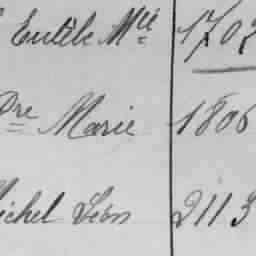 Eutèle Mll 1702
Dre Marie 1806
Michel Léon 2113